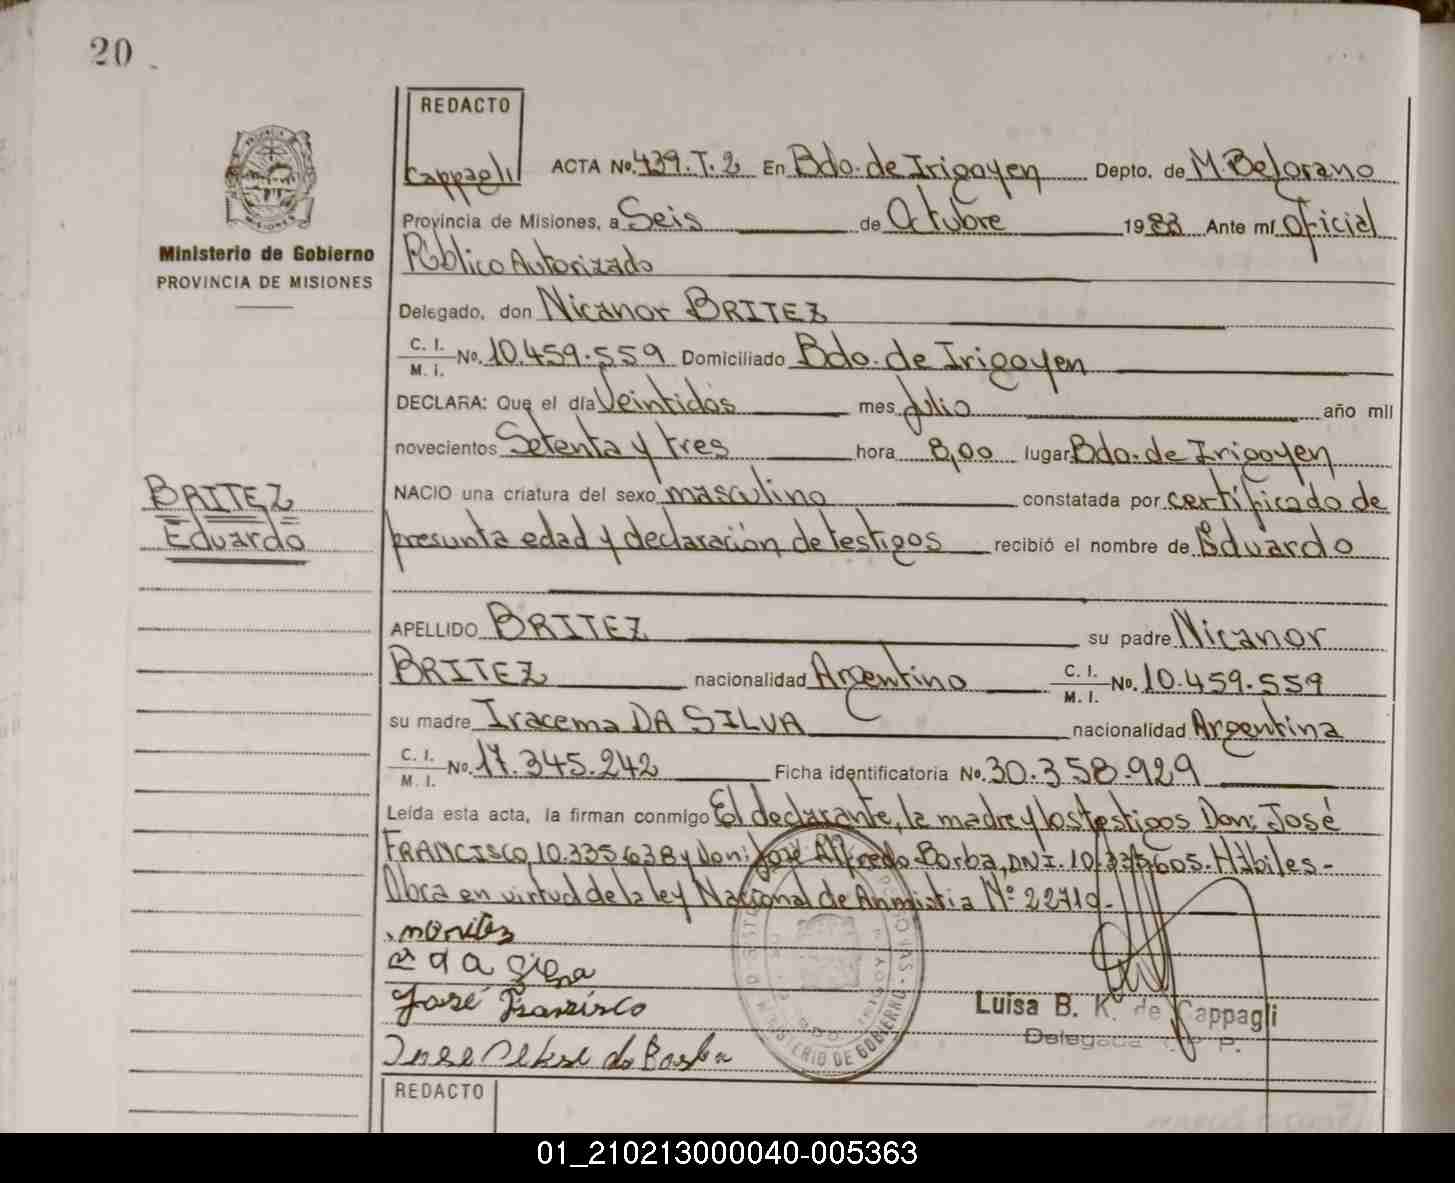 20
REDACTO
Cappagli
ACTA No. 439.T.2 En Bdo. de Irigoyen Depto. de M. Belgrano
Provincia de Misiones, a Seis de Octubre 1983 Ante mí Oficial
Público Autorizado
Ministerio de Gobierno
PROVINCIA DE MISIONES
Delegado, don Nicanor BRITEZ
C. I.
M. I. No. 10.459.559 Domiciliado Bdo. de Irigoyen
DECLARA: Que el día Veintidos mes Julio año mil
novecientos Setenta y tres hora 8,00 lugar Bdo. de Irigoyen
BRITEZ
Eduardo
NACIO una criatura del sexo masculino constatada por certificado de
presunta edad y declaración de testigos recibió el nombre de Eduardo
APELLIDO BRITEZ su padre Nicanor
BRITEZ nacionalidad Argentino C. I. M. I. No. 10.459.559
su madre Iracema DA SILVA nacionalidad Argentina
C. I.
M. I. No. 17.345.242 Ficha identificatoria No. 30.358.929
Leída esta acta, la firman conmigo El declarante, la madre y los testigos Don: José
FRANCISCO, 10.335.638 y Don: José Alfredo Borba, DNI. 10.335.605. Hábiles-
Obra en virtud de la ley Nacional de Anmistia Nº 22710-
José Francisco
MINISTERIO DE GOBIERNO
Luisa B. K. de Cappagli
Delegada
REDACTO
01_210213000040-005363